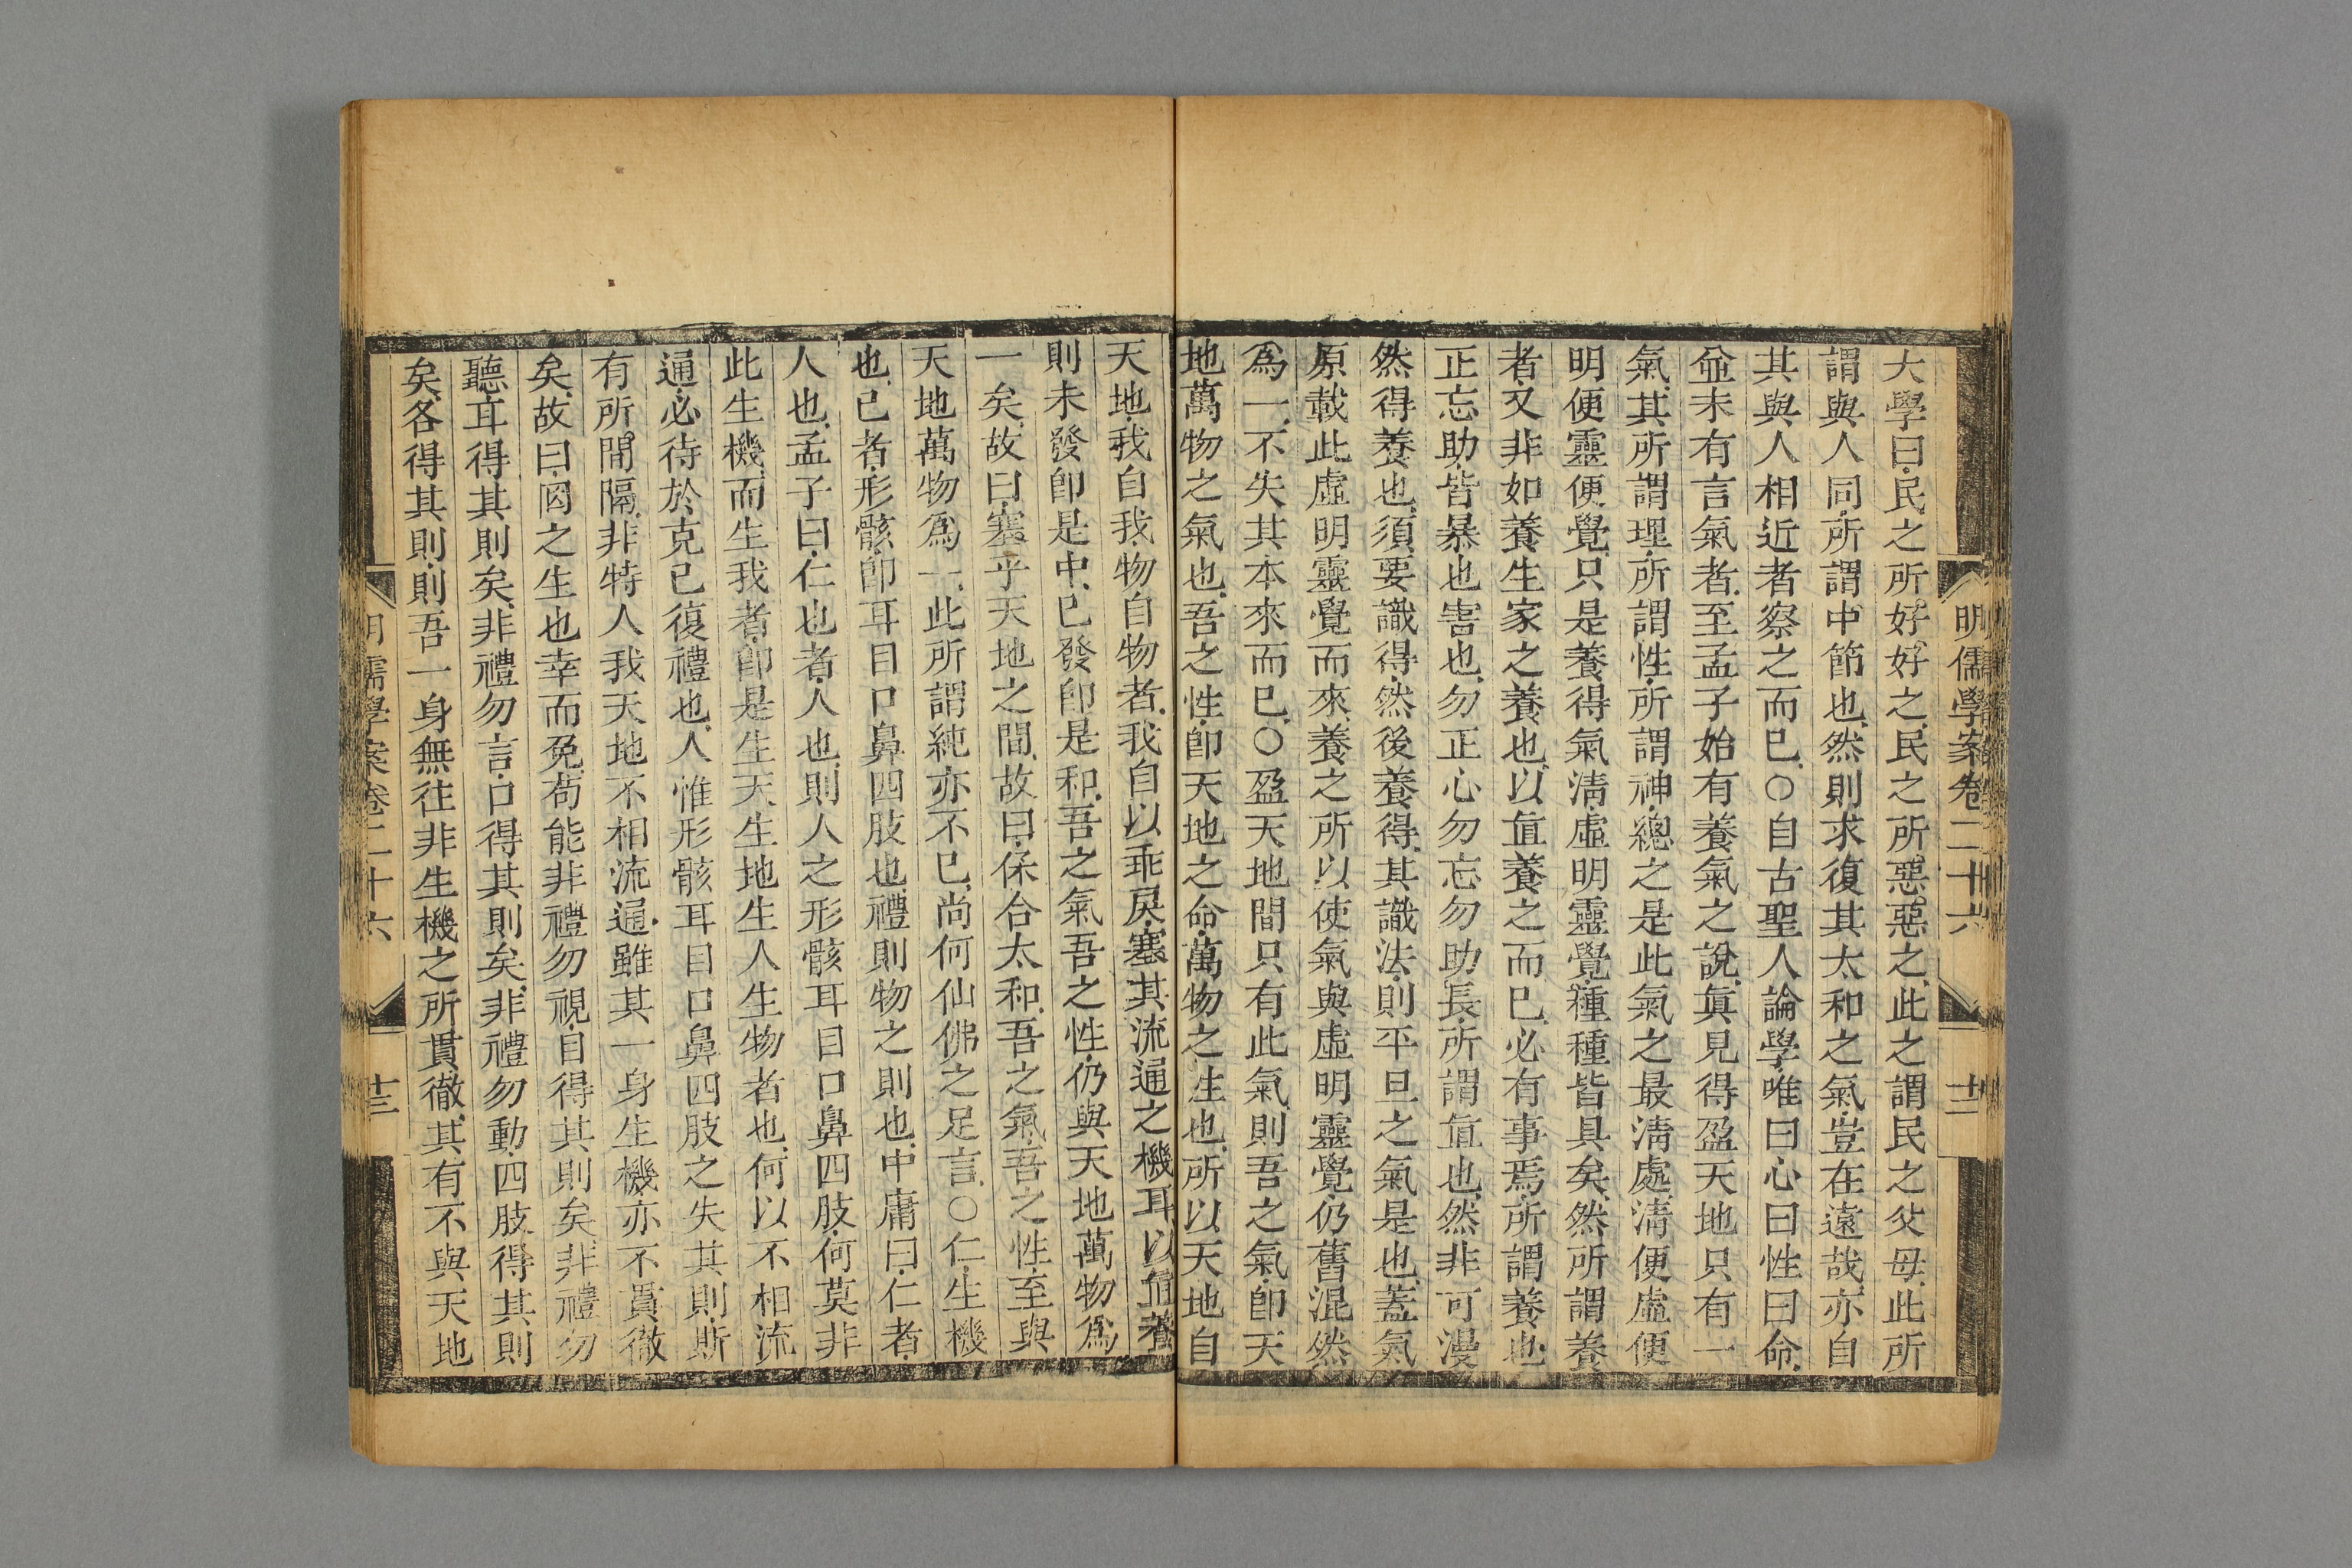 明儒學案卷二十六
十二
大學曰、民之所好好之、民之所惡惡之、此之謂民之父母、此所
謂與人同、所謂中節也、然則求復其太和之氣、豈在遠哉、亦自
其與人相近者察之而已、○自古聖人論學、唯曰心曰性曰命、
並未有言氣者、至孟子始有養氣之說、眞見得盈天地只有一
氣、其所謂理、所謂性、所謂神、總之是此氣之最淸處、淸便虛便
明便靈便覺、只是養得氣淸、虛明靈覺、種種皆具矣、然所謂養
者、又非如養生家之養也、以直養之而已、必有事焉、所謂養也、
正忘助、皆暴也害也、勿正心勿忘勿助長、所謂直也、然非可漫
然得養也、須要識得、然後養得、其識法、則平旦之氣是也、蓋氣
原載此虛明靈覺而來、養之所以使氣與虛明靈覺、仍舊混然
爲一、不失其本來而已、○盈天地間只有此氣、則吾之氣、卽天
地萬物之氣也、吾之性、卽天地之命、萬物之生也、所以天地自
天地、我自我、物自物者、我自以乖戾、塞其流通之機耳、以直養
則未發卽是中、已發卽是和、吾之氣吾之性、仍與天地萬物爲
一矣、故曰、塞乎天地之間、故曰、保合太和、吾之氣、吾之性、至與
天地萬物爲一、此所謂純亦不已、尚何仙佛之足言、○仁、生機
也、己者、形骸、卽耳目口鼻四肢也、禮則物之則也、中庸曰、仁者、
人也、孟子曰、仁也者、人也、則人之形骸耳目口鼻四肢、何莫非
此生機、而生我者、卽是生天生地生人生物者也、何以不相流
通、必待於克己復禮也、人惟形骸耳目口鼻四肢之失其則、斯
有所間隔、非特人我天地不相流通、雖其一身生機、亦不貫徹
矣、故曰、罔之生也幸而免、苟能非禮勿視、目得其則矣、非禮勿
聽、耳得其則矣、非禮勿言、口得其則矣、非禮勿動、四肢得其則
矣、各得其則、則吾一身無往非生機之所貫徹、其有不與天地
明儒學案卷二十六
十三